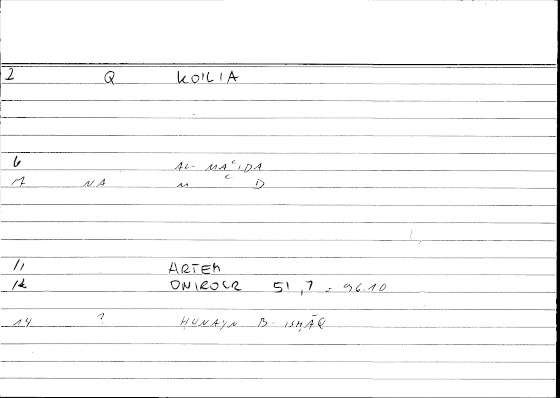 2 Q KOILIA
6 AL-MAʿIDA
7 NA M ʿ D
11 ARTEM
12 ONIROCR 51,7 = 96.10
14 ? HUNAYN B. ISHĀQ